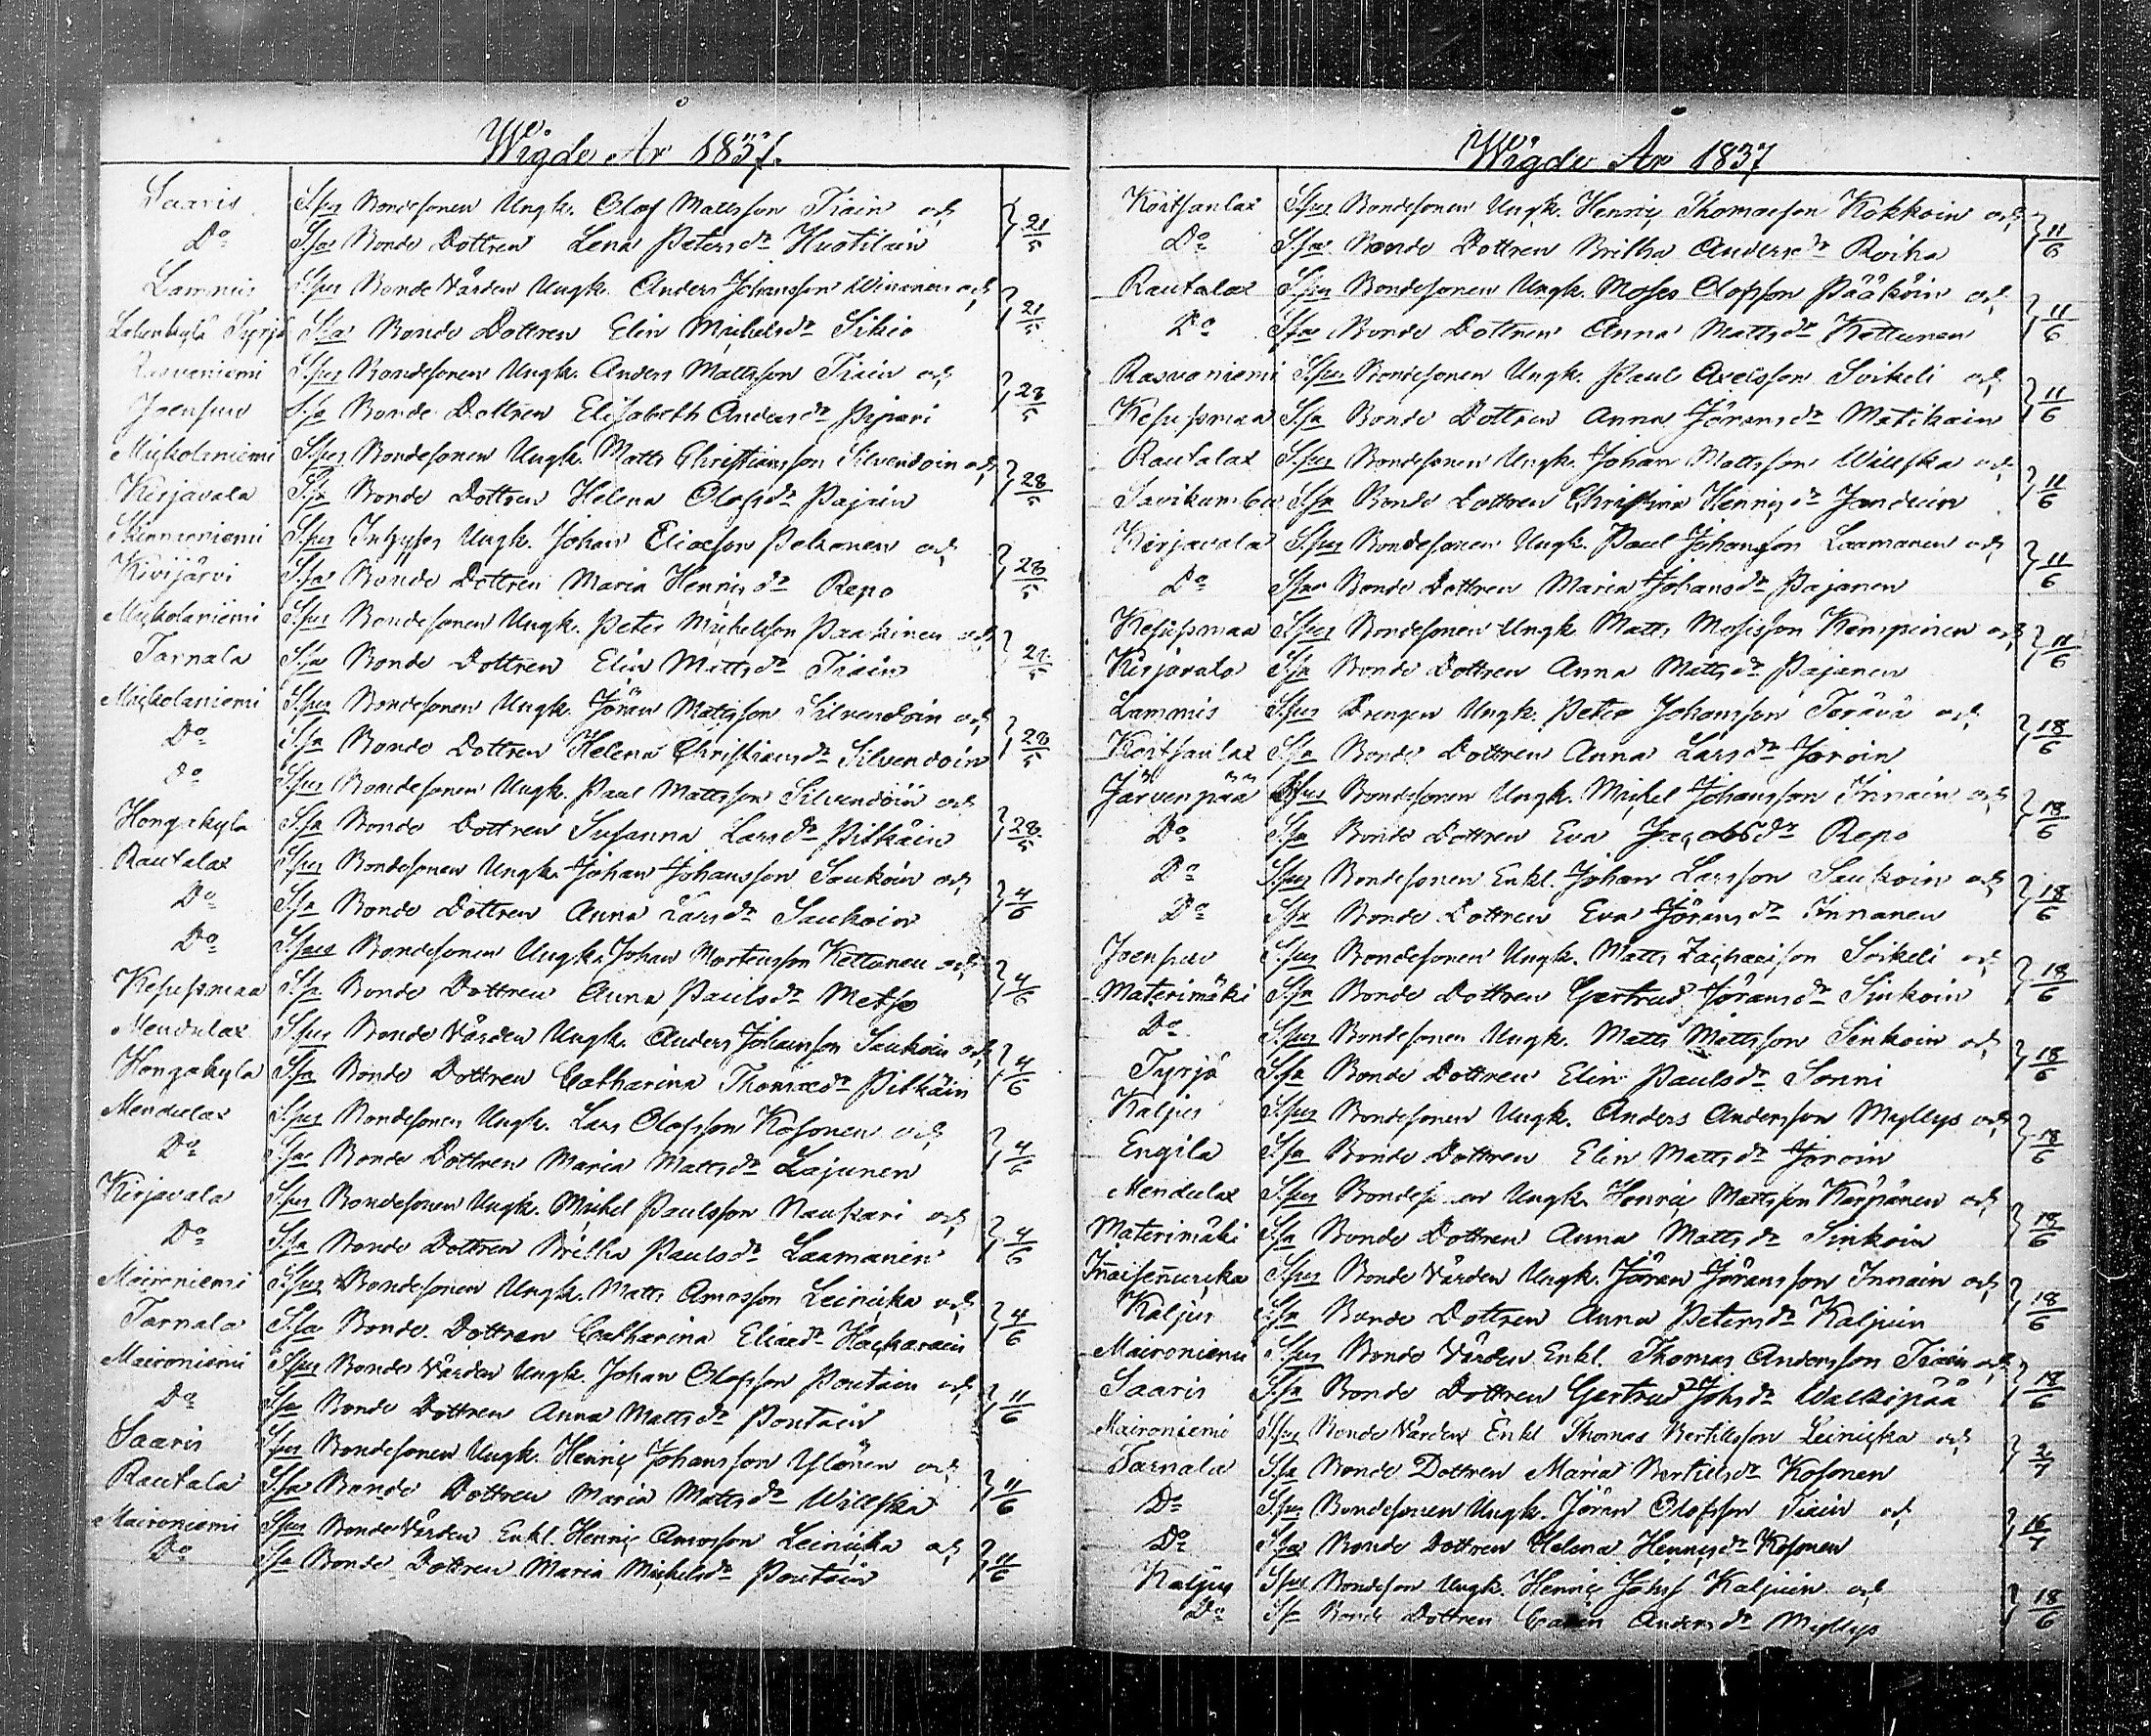 Wigde År 1837.
Saaris Spus Bondesonen Ungk. Olof Mattsson Tiain och
Do Spa Bonde Dottren Lena Petersdr Huotilain 21/5
Lammis Spus Bonde Vården Ungk. Anders Johansson Wiinanen och
Tyrjä Spa Bonde Dottren Elin Michelsdr Sikiö 21/5
Rasvaniemi Spus Bondesonen Ungk. Anders Mattsson Tiain och
Joensuu Spa Bonde Dottren Elisabeth Andersdr Pipari 28/5
Mickolaniemi Spus Bondesonen Ungk. Matts Christiansson Silvendoin och
Kirjavala Spa Bonde Dottren Helena Olofsdr Pajain 28/5
Spus Inhyses Ungk. Johan Eliaeson Pelkonen och
Kivijärvi Spa Bonde Dottren Maria Henricsdr Repo 28/5
Mickolaniemi Spus Bondesonen Ungk. Peter Michelsson Paakinen och
Tarnala Spa Bonde Dottren Elin Mattsdr Tiain
Mickolaniemi Spus Bondesonen Ungk. Jöran Mattsson Silvendoin och
Do Spa Bonde Dottren Helena Christiansdr Silvendoin 28/5
Do Spus Bondesonen Ungk. Paul Mattsson Silvendöin och
Hongakylä Spa Bonde Dottren Susanna Larsdr Pitkäin 28/5
Rautalax Spus Bondesonen Ungk. Johan Johansson Saukoin och
Do Spa Bonde Dottren Anna Larsdr Saukoin 4/6
Do Spus Bondesonen Ungk. Johan Mortensson Kettunen och
Kesusmaa Spa Bonde Dottren Anna Paulsdr Metso 4/6
Mendulax Spus Bonde Vården Ungk. Anders Johansson Saukoin och
Hongakyla Spa Bonde Dottren Catharina Thomædr Pitkäin 4/6
Mendulax Spus Bondesonen Ungk. Lars Olofsson Kosonen och
Do Spa Bonde Dottren Maria Mattsdr Lajunen 4/6
Kirjavala Spus Bondesonen Ungk. Michel Paulsson Naukari och
Do Spa Bonde Dottren Britha Paulsdr Laamanen 4/6
Maironiemi Spus Bondesonen Ungk. Matts Amosson Leinicka och
Tarnala Spa Bonde Dottren Catharina Eliaedr Hacharain 4/6
Maironiemi Spus Bonde Vården Ungk. Johan Olofsson Poutain och
Do Spa Bonde Dottren Anna Mattsdr Poutain 11/6
Saaris Spus Bondesonen Ungk. Henric Johansson Ylönen och
Rautala Spa Bonde Dottren Maria Mattsdr Willska 11/6
Maironiemi Spus Bonde Vården Enkl. Henric Amosson Leinicka och
Do Spa Bonde Dottren Maria Michelsdr Poutain 11/6
Wigde År 1837
Koitsanlax Spus Bondesonen Ungk. Henric Thomaeson Kokkoin och
Do Spa Bonde Dottren Britha Andersdr Roiha 11/6
Rautalax Spus Bondesonen Ungk. Moses Olofsson Pääköin och
Do Spa Bonde Dottren Anna Mattsdr Kettunen 11/6
Rasvaniemi Spus Bondesonen Ungk. Paul Axelsson Soikeli och
Kesusmaa Spa Bonde Dottren Anna Jöransdr Matikain 11/6
Rautalax Spus Bondesonen Ungk. Johan Mattsson Willska och
Savikumbu Spa Bonde Dottren Christina Henricsdr Janduin 11/6
Kirjavala Spus Bondesonen Ungk. Paul Johansson Laamanen och
Do Spa Bonde Dottren Maria Johansdr Pajanen 11/6
Kesusmaa Spus Bondesonen Ungk. Matts Mosisson Kempinen och
Kirjavala Spa Bonde Dottren Anna Mattsdr Pajanen 11/6
Lammis Spus Drengen Ungk. Peter Johansson Terävä och
Koitsanlax Spa Bonde Dottren Anna Larsdr Joroin 18/6
Järvenpää Spus Bondesonen Ungk. Michel Johansson Innain och
Do Spa Bonde Dottren Eva Jacobsdr Repo 18/6
Do Spus Bondesonen Enkl. Johan Larsson Saukoin och
Do Spa Bonde Dottren Eva Jöransdr Innanen 18/6
Joensuu Spus Bondesonen Ungk. Matts Zachaeison Soikeli och
Materimäki Spa Bonde Dottren Gertrud Jöransdr Sinkoin 18/6
Do Spus Bondesonen Ungk. Matts Mattsson Sinkoin och
Tyrjä Spa Bonde Dottren Elin Paulsdr Sonni 18/6
Kaljus Spus Bondesonen Ungk. Anders Andersson Myllys och
Engila Spa Bonde Dottren Elin Mattsdr Joroin 18/6
Mendulax Spus Ungk. Henric Mattsson Kärpänen och
Materimäki Spa Bonde Dottren Anna Mattsdr Sinkoin 18/6
Spus Bonde Vården Ungk. Jöran Jöransson Innain och
Kaljus Spa Bonde Dottren Anna Petersdr Kaljuin 18/6
Maironiemi Spus Bonde Vården Enkl. Thomas Andersson Tiain och
Saaris Spa Bonde Dottren Gertrud Johsdr Walkipää 18/6
Maironiemi Spus Bonde Vården Enkl Thomas Bertilsson Leinicka och
Tarnala Spa Bonde Dottren Maria Bertilsdr Kosonen 2/7
Do Spus Bondesonen Ungk. Jöran Olofsson Tiain och
Do Spa Bonde Dottren Helena Henricsdr Kosonen 16/7
Kaljus Spus Bondeson Ungk. Henric Johss Kaljuin och
Do Spa Bonde Dottren Carin Andersdr Myllys 18/6